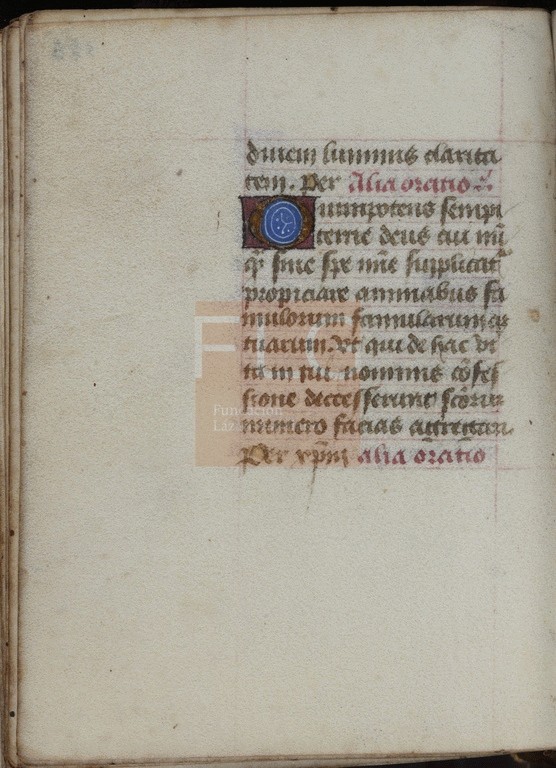 duicm luminis clarita
tem. Per Alia oratio
Omnipotens sempi
terne deus cui nū
q̄ sine spe mīe supplicat̄
propiciare animabus fa
mulorum famularumq̄
tuarum. vt qui de hac vi
ta in tui nominis cōfes
sione decesserunt scōrum
numero facias aggregari.
Per xpm̄ alia oratio
FLG
Fundación
Láz